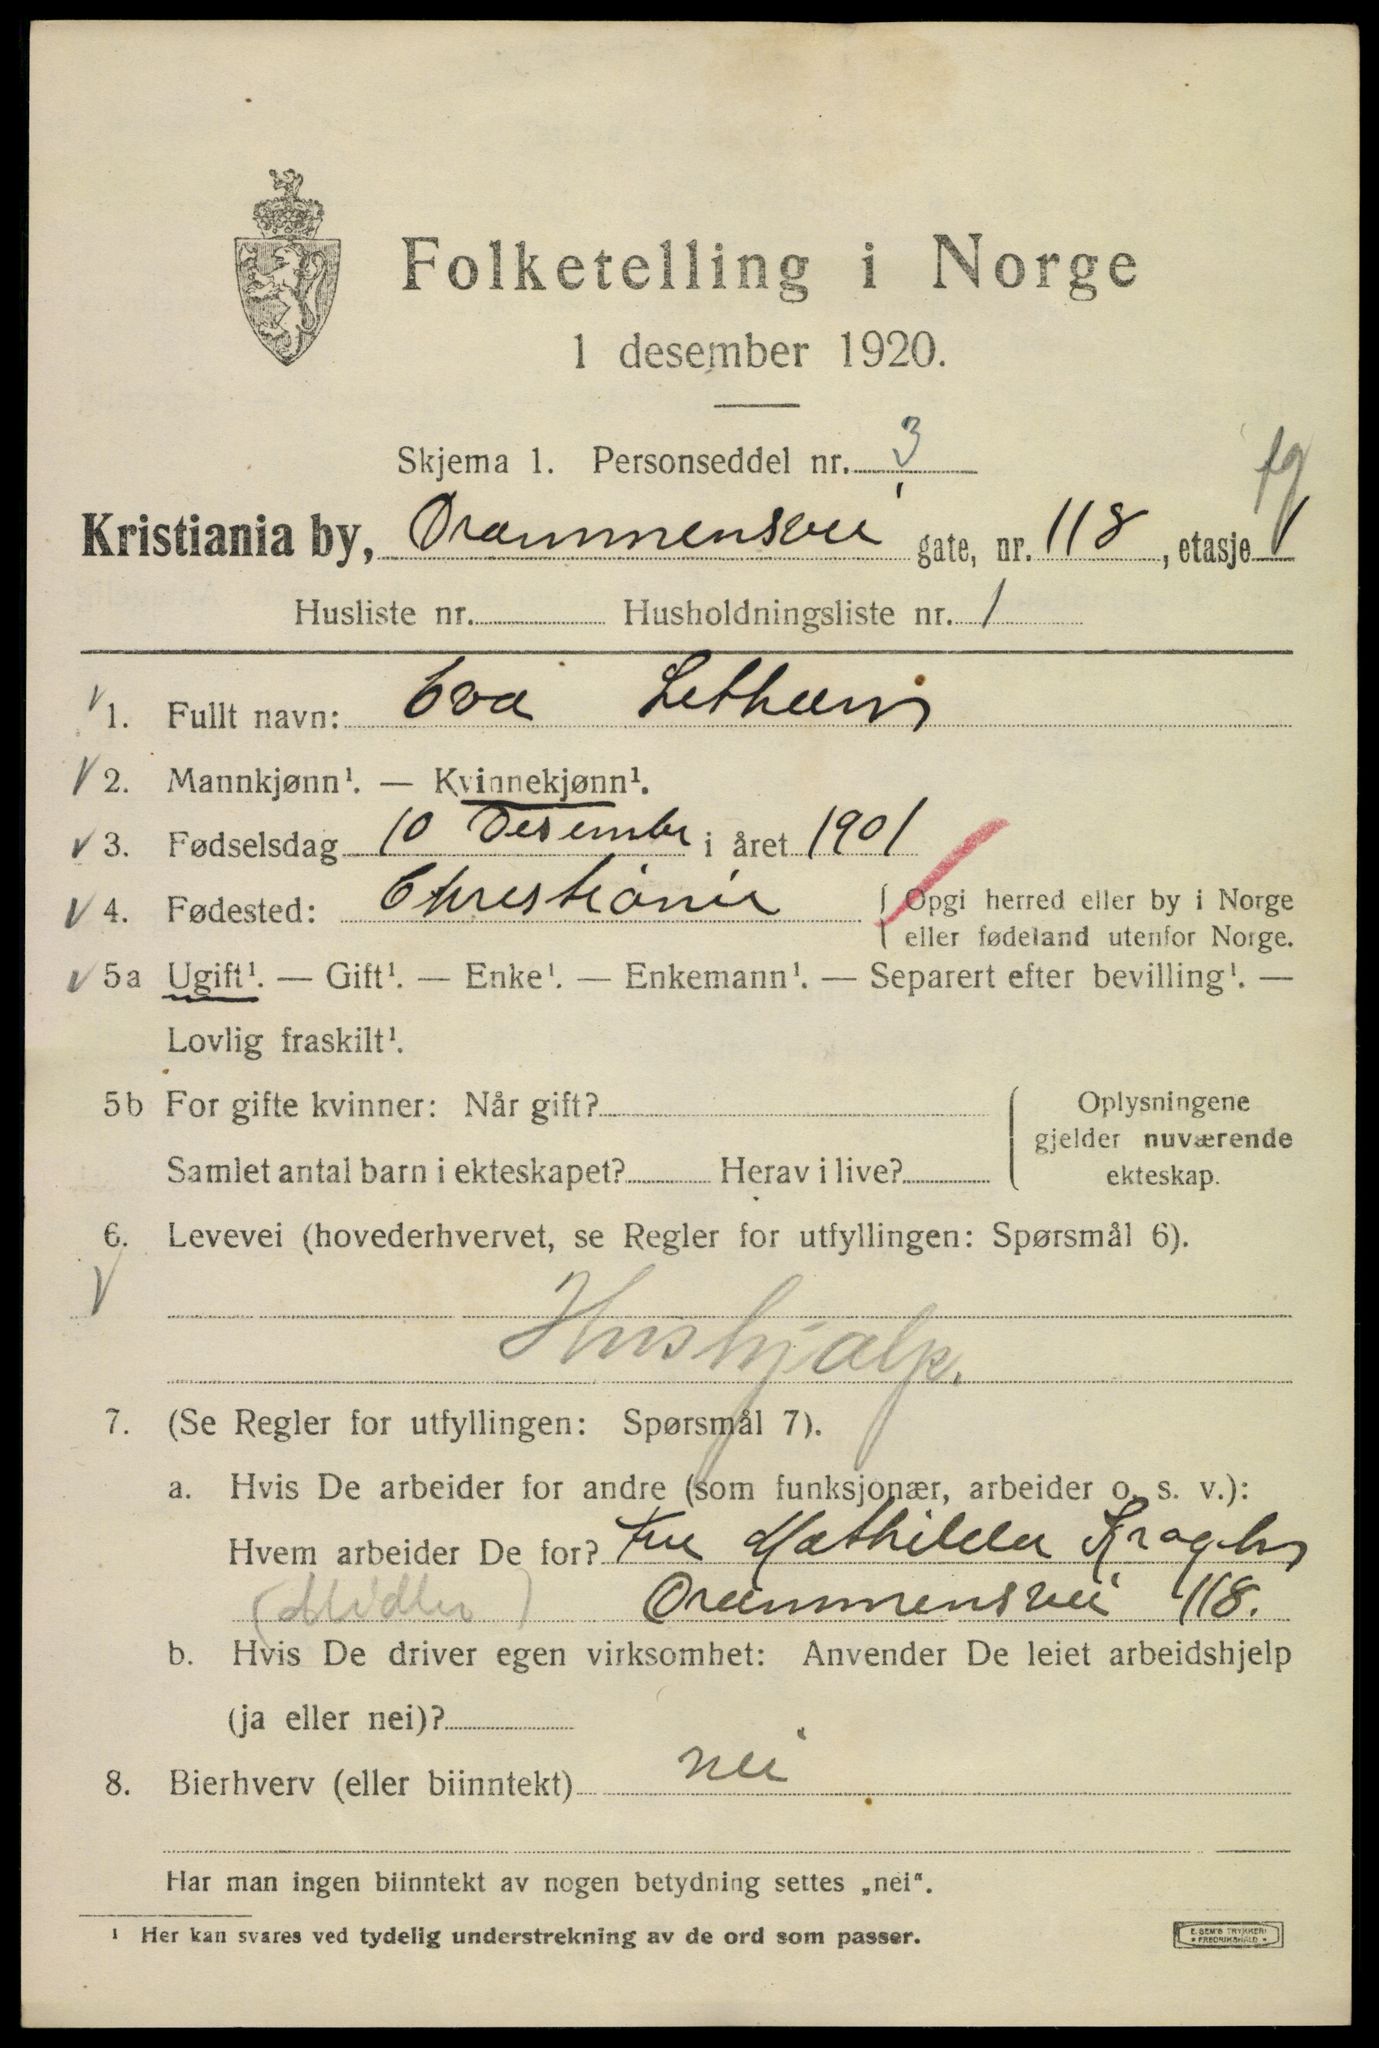 Folketelling i Norge
1 desember 1920.
Skjema 1. Personseddel nr. 3
Kristiania by, Drammensvei gate, nr. 118, etasje 1
Husliste nr. Husholdningsliste nr. 1
1. Fullt navn: Eva
2. Mannkjønn¹. — Kvinnekjønn¹.
3. Fødselsdag 10 Desember i året 1901
4. Fødested: Christiania { Opgi herred eller by i Norge
eller fødeland utenfor Norge.
5a Ugift¹. — Gift¹. — Enke¹. — Enkemann¹. — Separert efter bevilling¹. —
Lovlig fraskilt¹.
5b For gifte kvinner: Når gift? { Oplysningene
gjelder nuværende
Samlet antal barn i ekteskapet? Herav i live? ekteskap.
6. Levevei (hovederhvervet, se Regler for utfyllingen: Spørsmål 6).
Hushjælp.
7. (Se Regler for utfyllingen: Spørsmål 7).
a. Hvis De arbeider for andre (som funksjonær, arbeider o. s. v.):
Hvem arbeider De for? Fru Mathilda Kragh
Drammensvei 118.
b. Hvis De driver egen virksomhet: Anvender De leiet arbeidshjelp
(ja eller nei)?
8. Bierhverv (eller biinntekt) nei
Har man ingen biinntekt av nogen betydning settes „nei“.
¹ Her kan svares ved tydelig understrekning av de ord som passer.
E. SEM'S TRYKKERI
FREDRIKSHALD